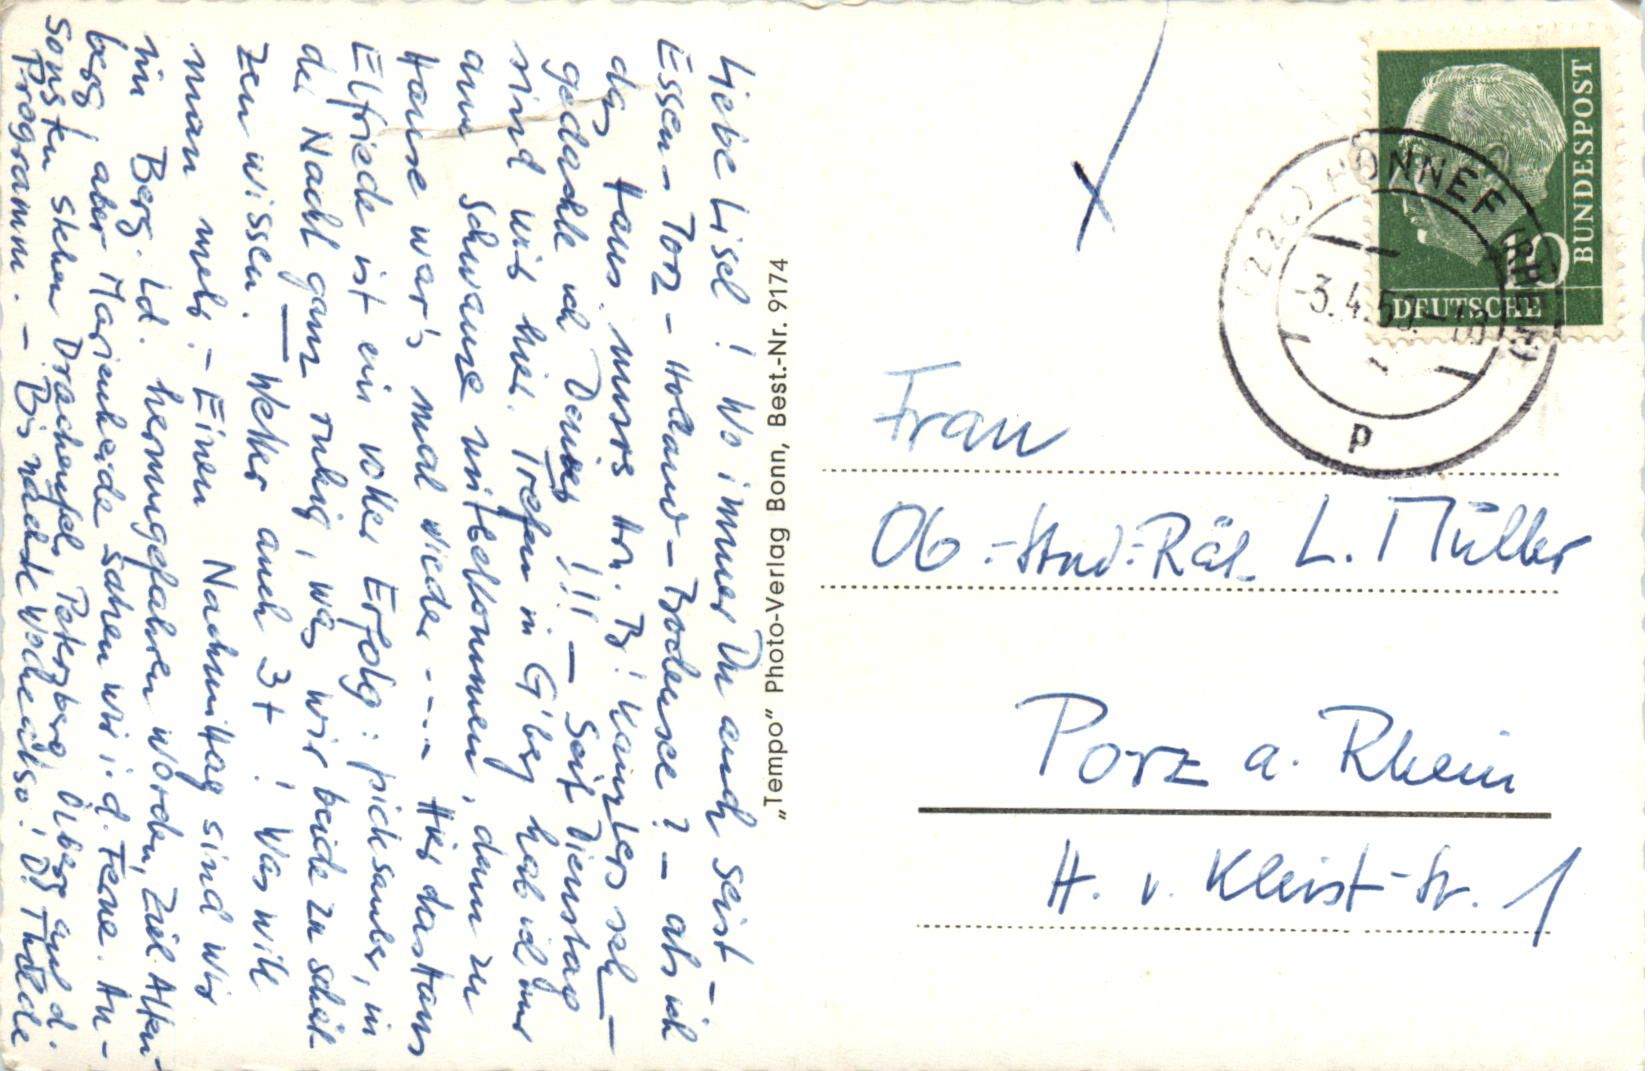 Liebe Lisel! Wo immer Du auch seist –
Essen – Porz – Holland – Bodensee? – als ich
das Haus uns. Hn. B! Kanzlers sah
gedachte ich Deines !!! – Seit Dienstag
sind wir hier. Treffen in G'berg hab ich nur
am Schwanz mitbekommen, denn zu
Hause war's mal wieder ---- Hier das Haus
Elfriede ist ein voller Erfolg: picksauber, in
der Nacht ganz ruhig, was wir beide zu schät-
zen wissen. – Wetter auch 3+ ! Was will
man mehr. – Einen Nachmittag sind wir
im Berg. Ld. herumgefahren worden, Ziel Alten-
berg, aber Marienheide sahen wir i. d. Ferne. An-
sonsten stehen Drachenfels, Petersberg, Ölberg auf d.
Programm. – Bis nächste Woche also!
„Tempo" Photo-Verlag Bonn, Best.-Nr. 9174
DEUTSCHE
BUNDESPOST
10
(22c) HONNEF (RHEIN)
-3.4.
p
Frau
Ob.-Stud.-Rät. L. Müller
Porz a. Rhein
H. v. Kleist-Str. 1